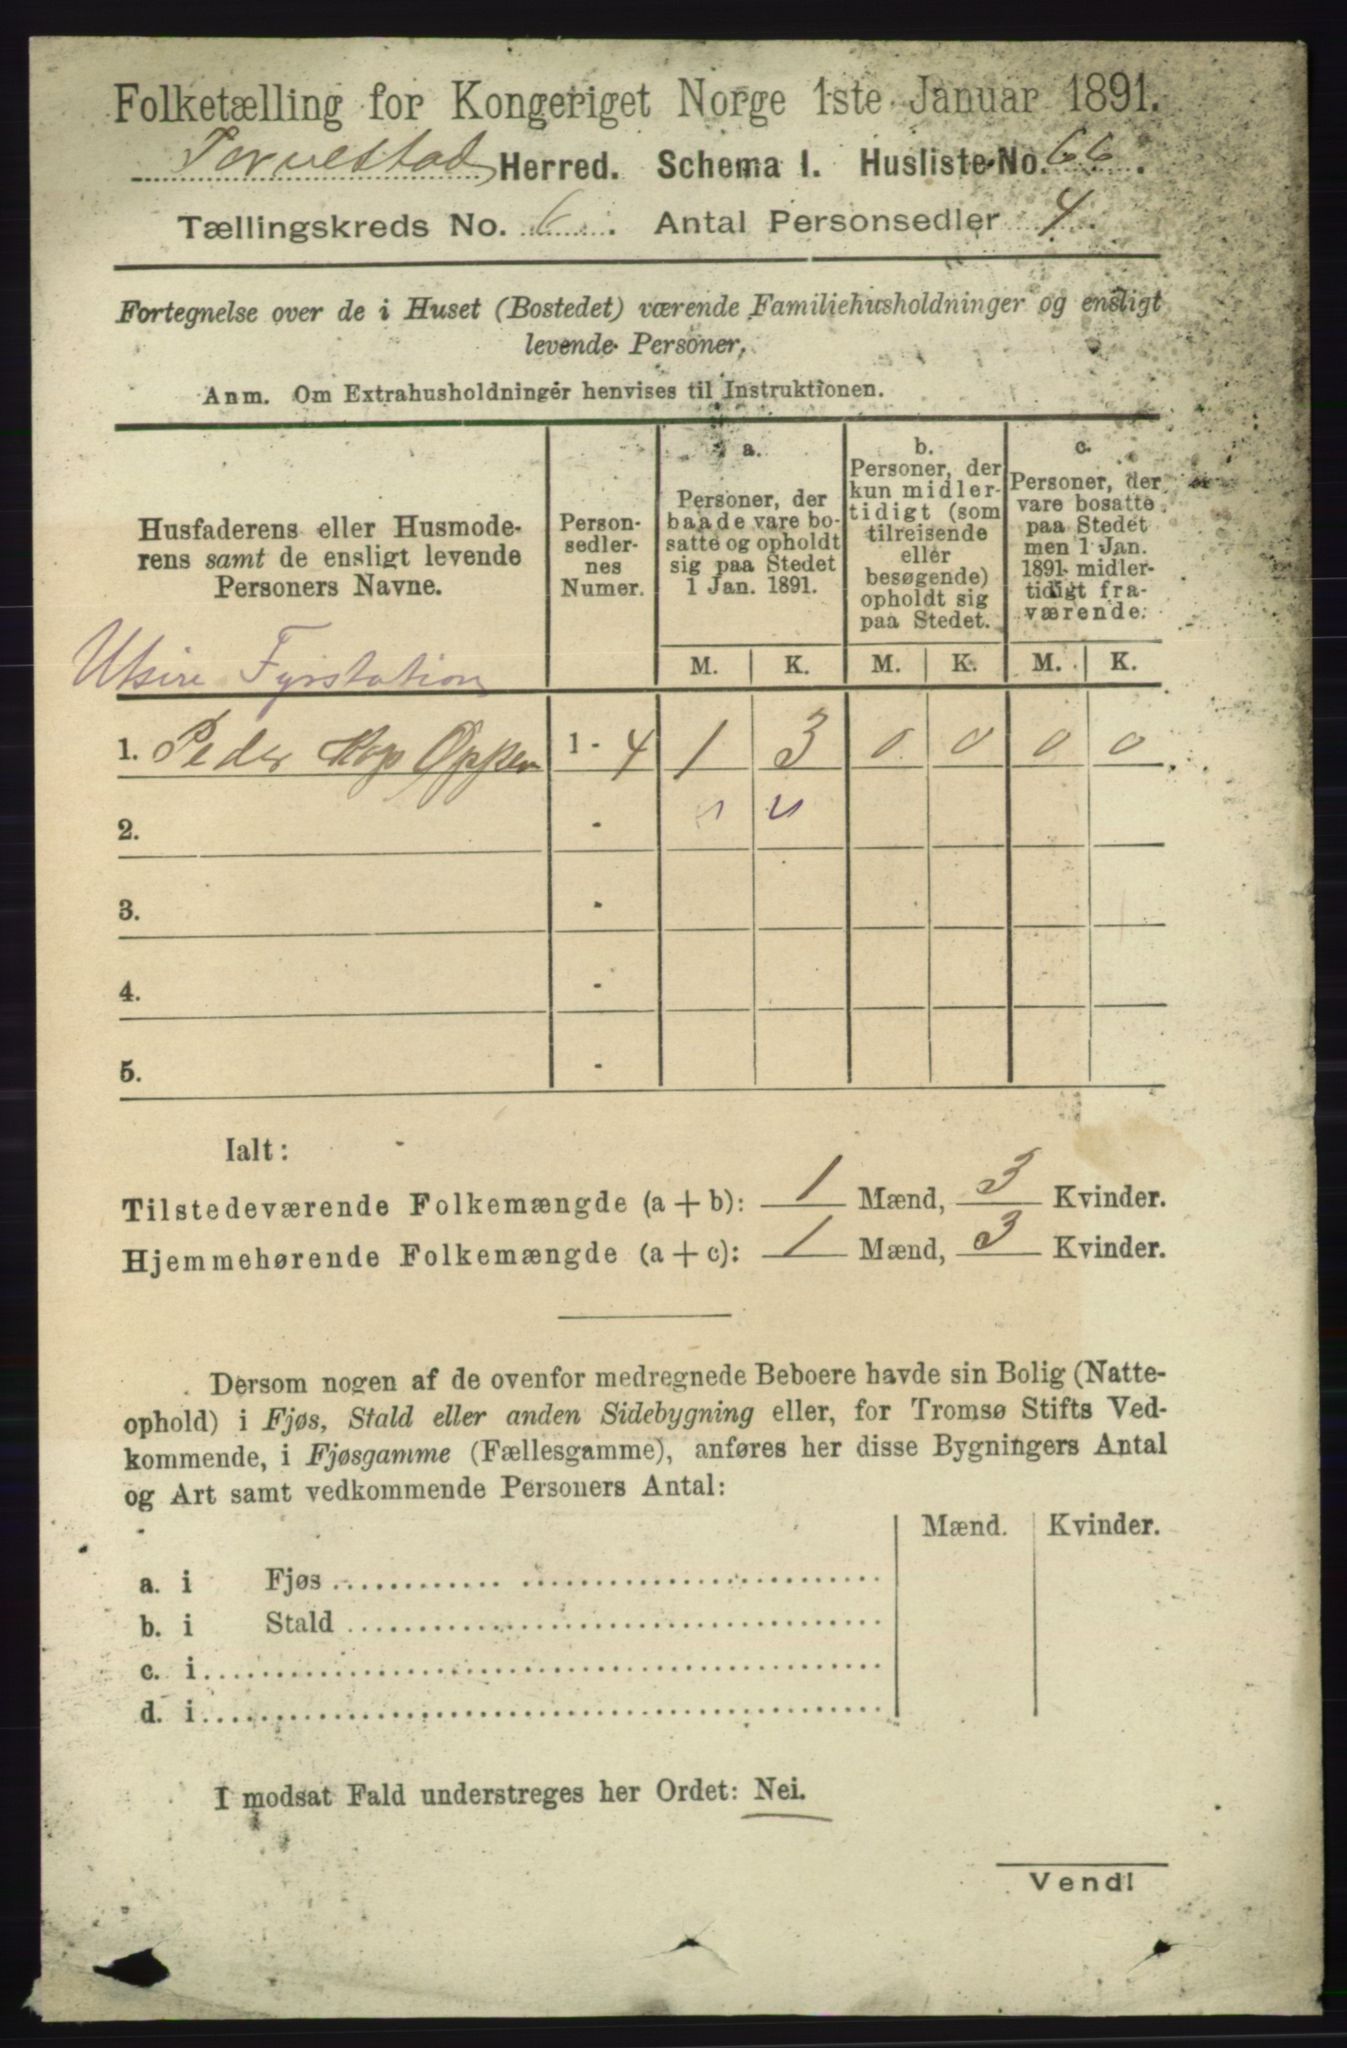 Folketælling for Kongeriget Norge 1ste Januar 1891.
Torvestad Herred. Schema I. Husliste No. 66.
Tællingskreds No. 6. Antal Personsedler 4
Fortegnelse over de i Huset (Bostedet) værende Familiehusholdninger og ensligt
levende Personer.
Anm. Om Extrahusholdninger henvises til Instruktionen.
Husfaderens eller Husmode-
rens samt de ensligt levende
Personers Navne.
Person-
sedler-
nes
Numer.
a.
Personer, der
baade vare bo-
satte og opholdt
sig paa Stedet
1 Jan. 1891.
b.
Personer, der
kun midler-
tidigt (som
tilreisende
eller
besøgende)
opholdt sig
paa Stedet.
c.
Personer, der
vare bosatte
paa Stedet
men 1 Jan.
1891 midler-
tidigt fra-
værende.
M. K. M. K. M. K.
Utsire Fyrstation
1. Peder Oppen 1 - 4 1 3 0 0 0 0
2. -
3. -
4. -
5. -
Ialt:
Tilstedeværende Folkemængde (a + b): 1 Mænd, 3 Kvinder.
Hjemmehørende Folkemængde (a + c): 1 Mænd, 3 Kvinder.
Dersom nogen af de ovenfor medregnede Beboere havde sin Bolig (Natte-
ophold) i Fjøs, Stald eller anden Sidebygning eller, for Tromsø Stifts Ved-
kommende, i Fjøsgamme (Fællesgamme), anføres her disse Bygningers Antal
og Art samt vedkommende Personers Antal:
Mænd. Kvinder.
a. i Fjøs
b. i Stald
c. i
d. i
I modsat Fald understreges her Ordet: Nei.
Vend!